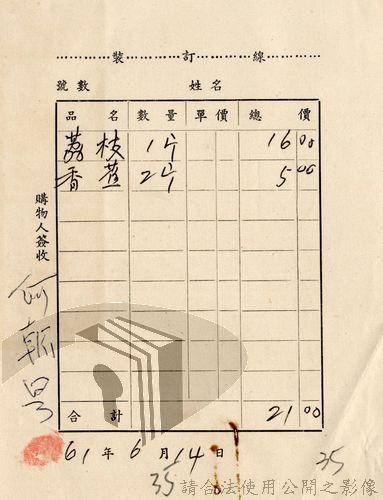 裝訂線
號數 姓名
品名 數量 單價 總價
荔枝 1斤 16 00
香蕉 2斤 5 00
合計 21 00
購物人簽收
61年6月14日
35 35
請合法使用公開之影像